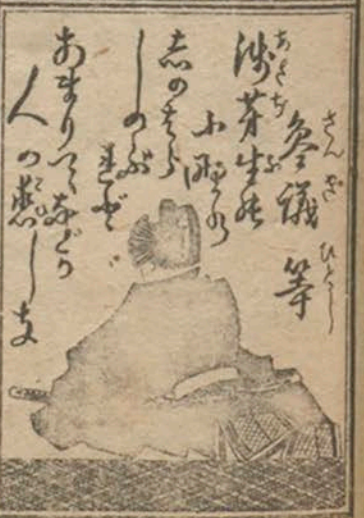 参議等
さんぎ ひとし
浅茅生の
あさぢふ
小野の
志のはら
しのぶ
れど
あまりてなどか
人の恋しき